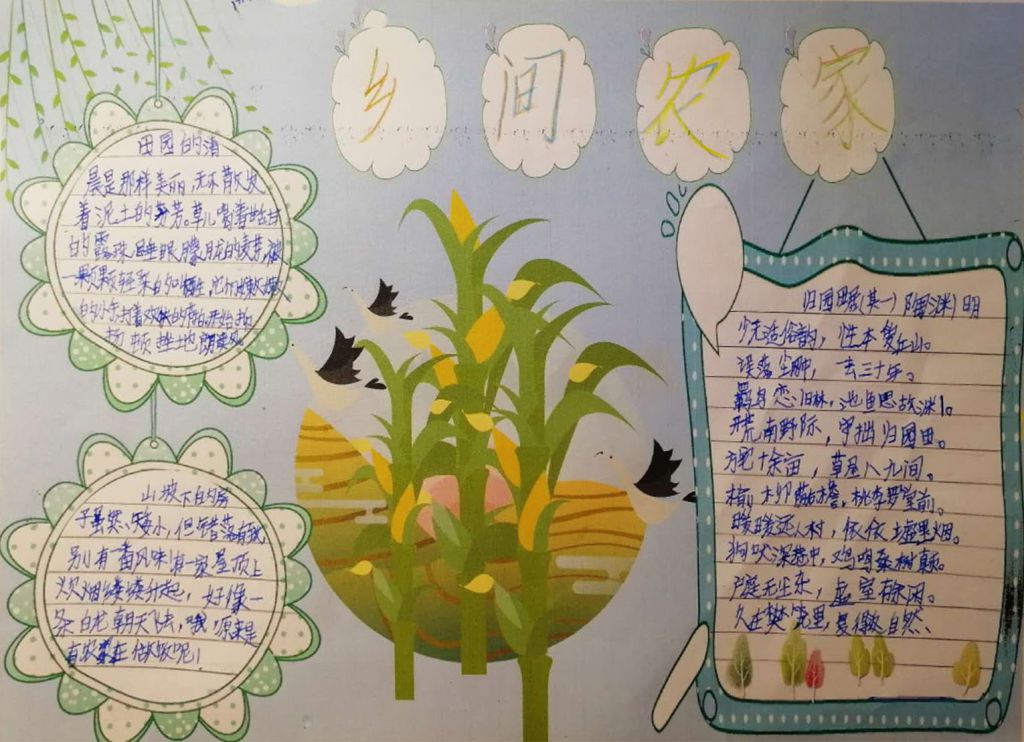 乡间农家
田园的清
晨是那样美丽,无不散发
着泥土的芬芳。草儿喝着
的露珠,睡眼朦胧的麦芽,被
一颗颗轻柔的
的
扬顿挫地朗读
山坡下的房
子虽然矮小,但错落有致,
别有一番风味!有一家屋顶上
炊烟缕缕升起,好像一
条白龙朝天飞去,哦,原来是
有农家在做饭呢!
归园田居(其一)陶渊明
少无适俗韵,性本爱丘山。
误落尘网,去三十年。
羁鸟恋旧林,池鱼思故渊。
开荒南野际,守拙归园田。
方宅十余亩,草屋八九间。
榆柳荫后檐,桃李罗堂前。
暧暧远人村,依依墟里烟。
狗吠深巷中,鸡鸣桑树颠。
户庭无尘杂,虚室有余闲。
久在樊笼里,复得返自然。